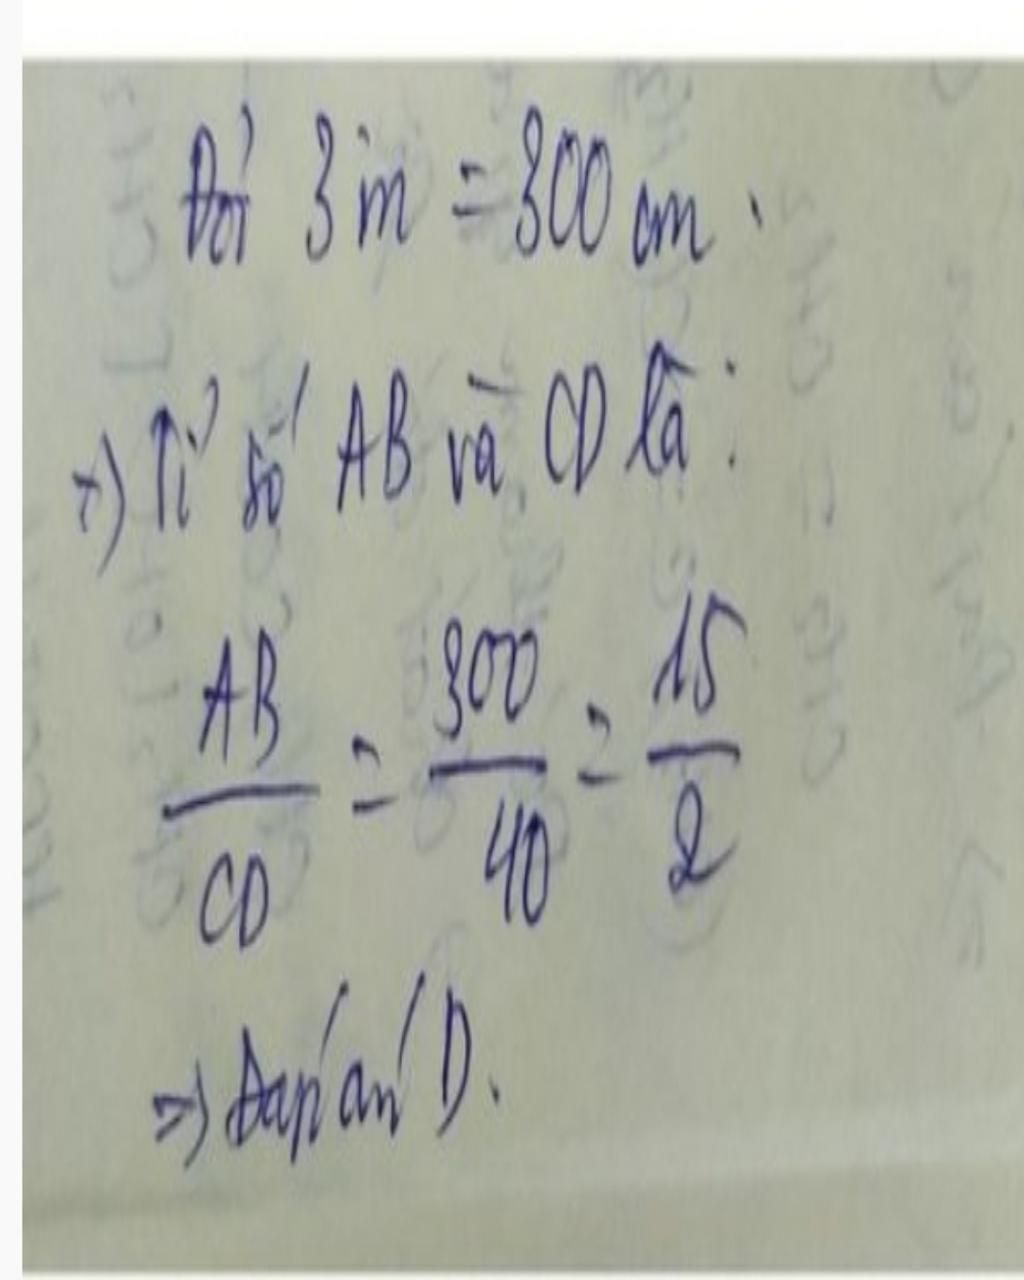 Đổi 3 m = 300 cm.
=) Tỉ số AB và CD là :
AB/CD = 300/40 = 15/2
=) Đáp án D.